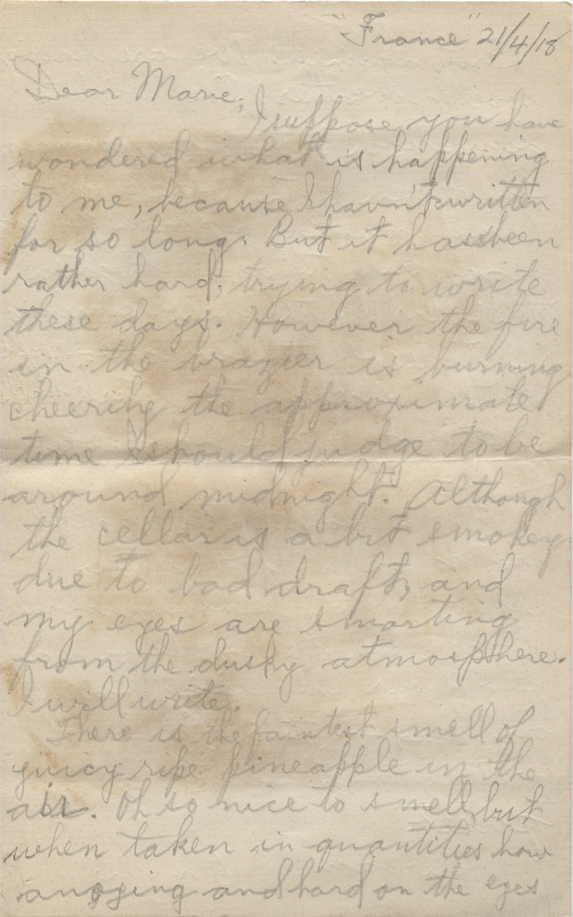 "France" 21/4/18
Dear Marie,
I suppose you have
wondered what is happening
to me, because I havn't written
for so long. But it has been
rather hard, trying to write
these days. However the fire
in the brazier is burning
cheerily the approximate
time I should judge to be
around midnight. Although
the cellar is a bit smokey
due to bad draft, and
my eyes are smarting
from the dusky atmosphere.
I will write.
There is the faintest smell of
juicy ripe pineapple in the
air. Oh so nice to smell but
when taken in quantities how
and hard on the eyes